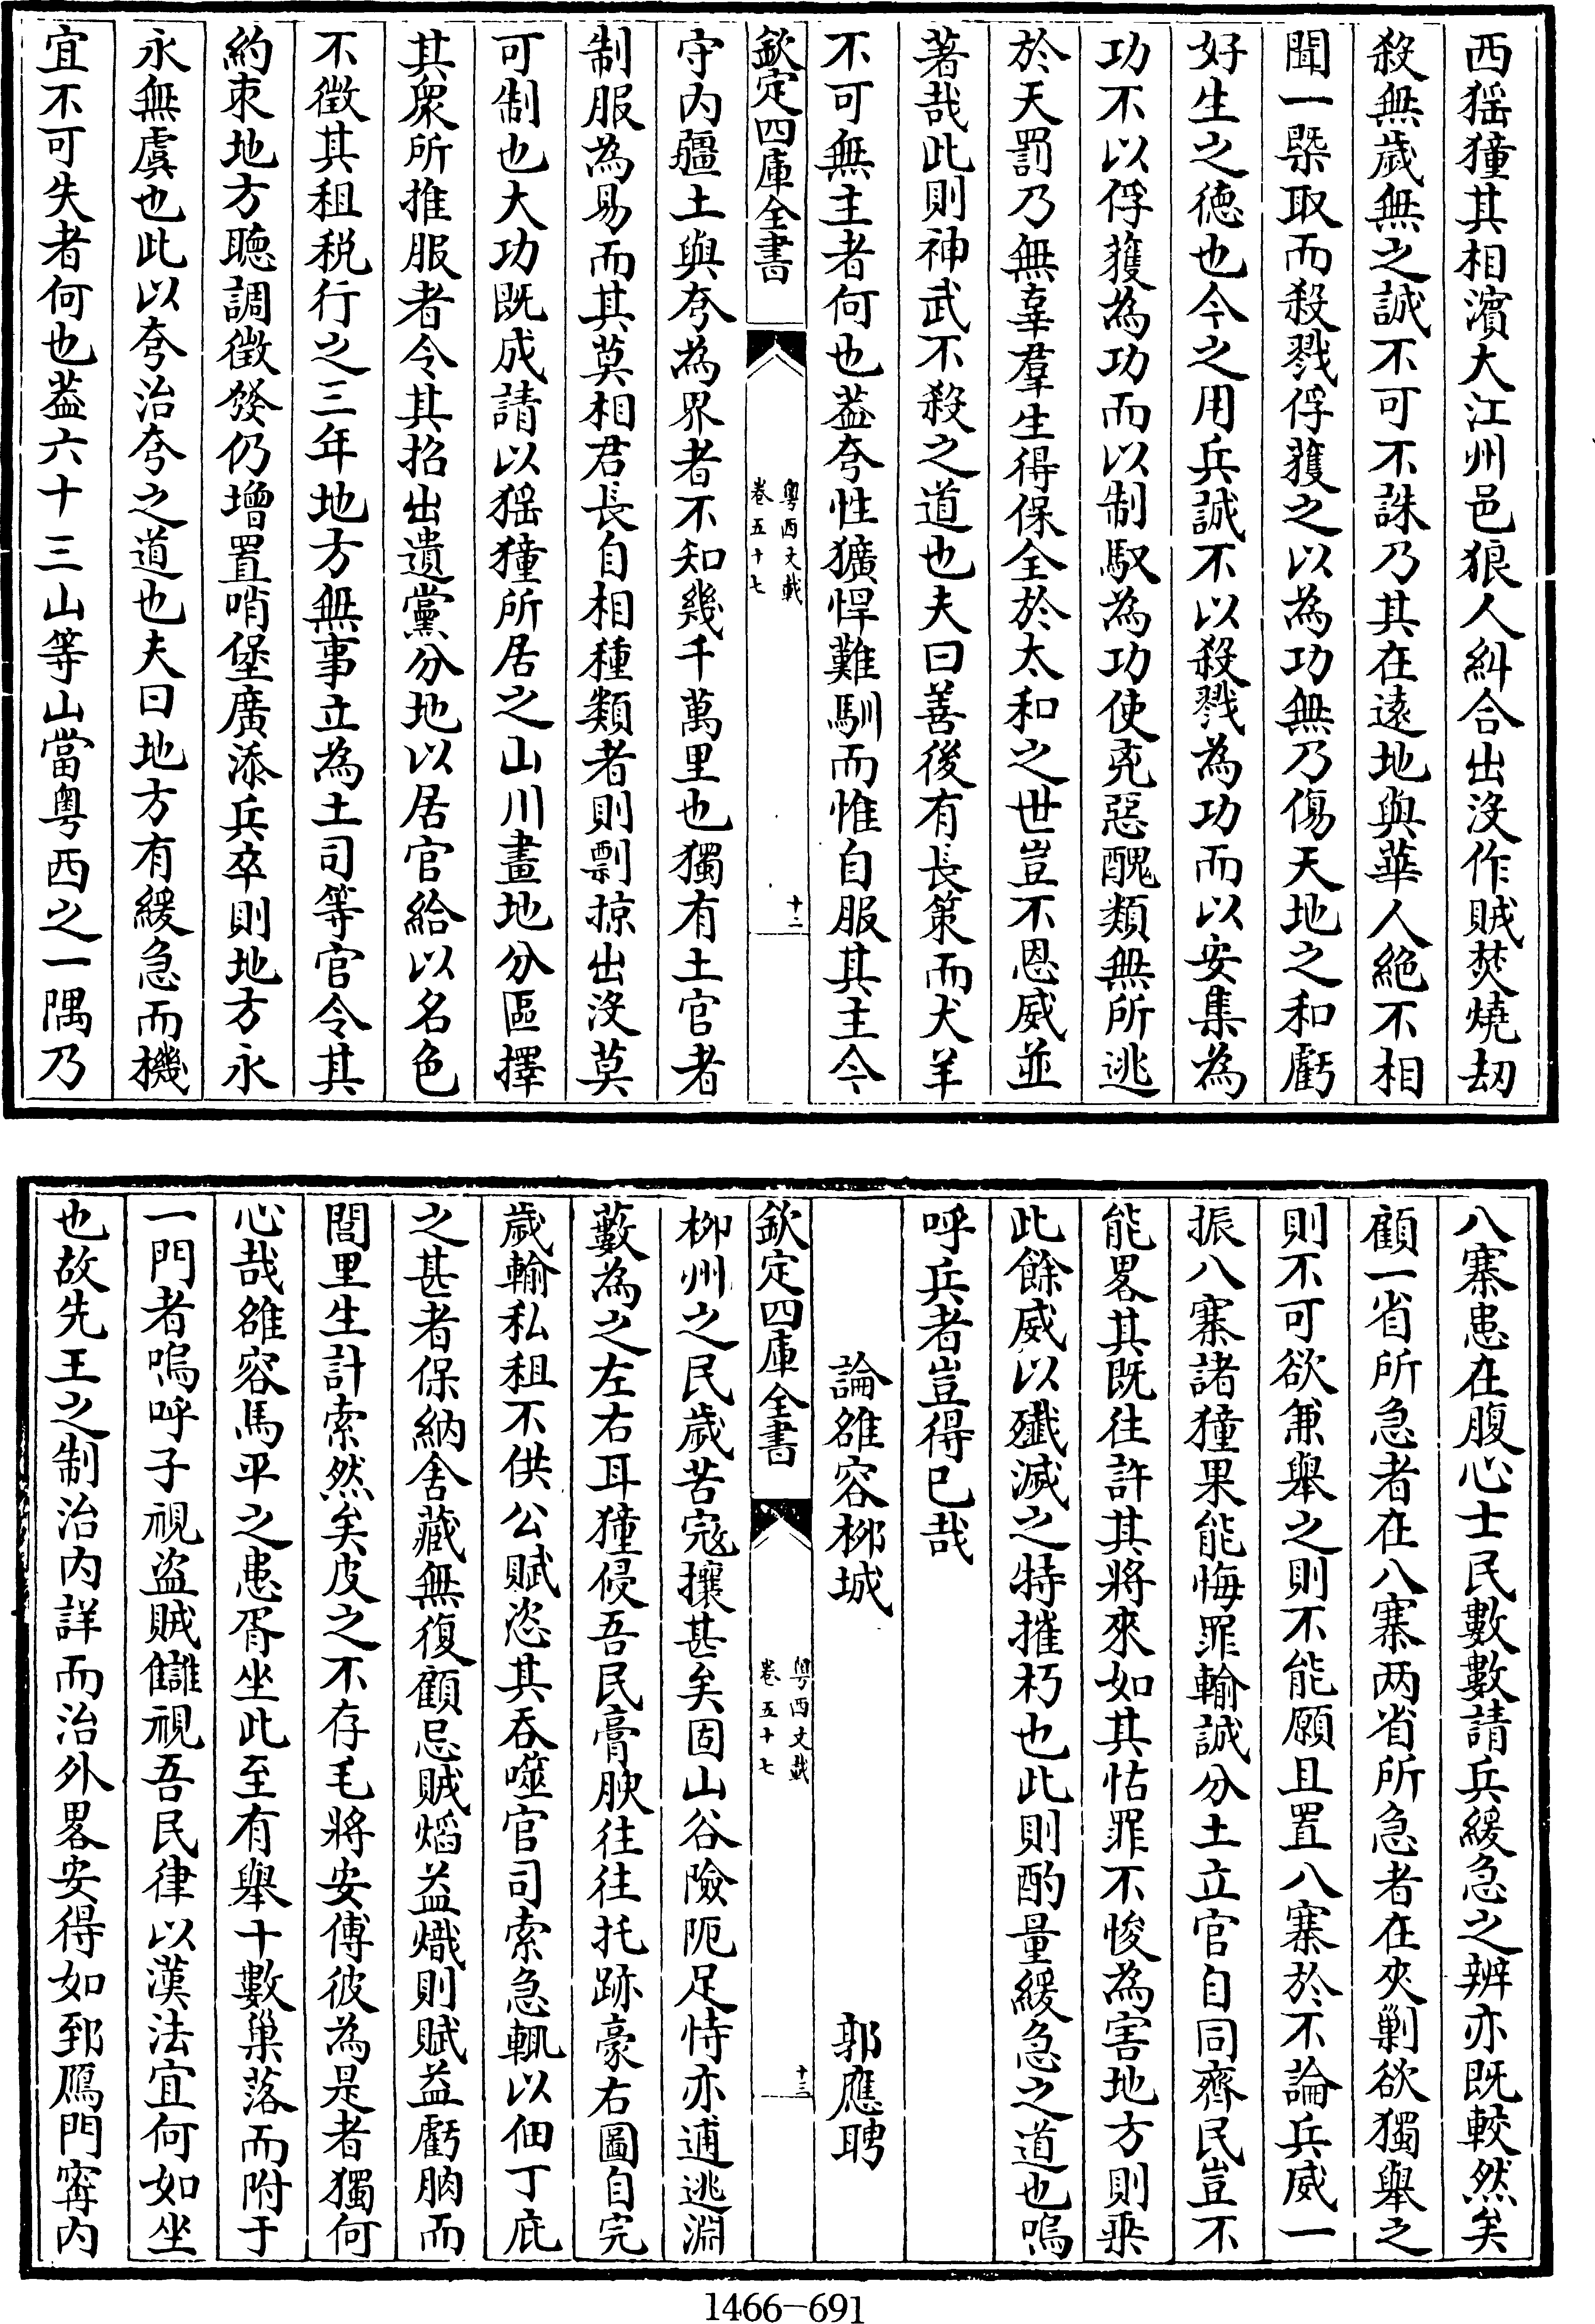 西猺獞其相濱大江州邑狼人糾合出沒作賊焚燒刼
殺無歲無之誠不可不誅乃其在遠地與華人絶不相
聞一槩取而殺戮俘獲之以為功無乃傷天地之和虧
好生之徳也今之用兵誠不以殺戮為功而以安集為
功不以俘獲為功而以制馭為功使兇惡醜類無所逃
於天罰乃無辜羣生得保全於太和之世豈不恩威並
著哉此則神武不殺之道也夫曰善後有長策而犬羊
不可無主者何也葢夸性獷悍難馴而惟自服其主今
欽定四庫全書
粤西文載
卷五十七
十二
守内疆土與夸為界者不知幾千萬里也獨有土官者
制服為易而其莫相君長自相種類者則剽掠出沒莫
可制也大功既成請以猺獞所居之山川畫地分區擇
其衆所推服者令其招出遺黨分地以居官給以名色
不徴其租税行之三年地方無事立為土司等官令其
約朿地方聽調徴發仍增置哨堡廣添兵卒則地方永
永無虞也此以夸治夸之道也夫曰地方有緩急而機
宜不可失者何也葢六十三山等山當粤西之一隅乃
八寨患在腹心士民數數請兵緩急之辨亦既較然矣
顧一省所急者在八寨两省所急者在夾剿欲獨舉之
則不可欲兼舉之則不能願且置八寨於不論兵威一
振八寨諸獞果能悔罪輸誠分土立官自同齊民豈不
能畧其既往許其將來如其怙罪不悛為害地方則乘
此餘威以殲滅之特摧朽也此則酌量緩急之道也嗚
呼兵者豈得已哉
論雒容栁城
郭應聘
欽定四庫全書
粤西文載
卷五十七
十三
栁州之民歲苦宼攘甚矣固山谷險阨足恃亦逋逃淵
藪為之左右耳獞侵吾民膏腴往往托跡豪右圖自完
歲輸私租不供公賦恣其吞噬官司索急輒以佃丁庇
之甚者保納舍藏無復顧忌賊熖益熾則賦益虧朘而
閭里生計索然矣皮之不存毛將安傅彼為是者獨何
心哉雒容馬平之患胥坐此至有舉十數巢落而附于
一門者嗚呼子視盗賊讎視吾民律以漢法宜何如坐
也故先王之制治内詳而治外畧安得如郅鴈門寗内
1466-691